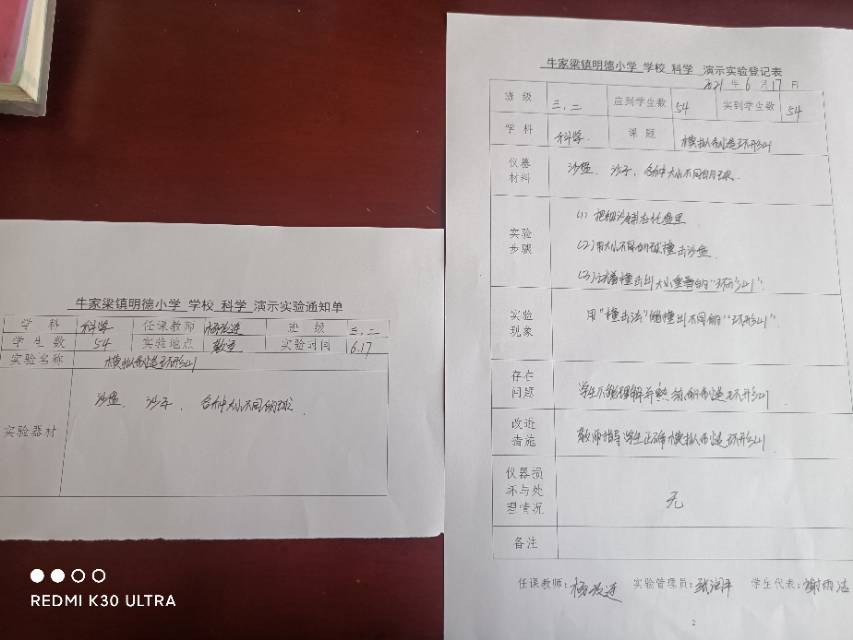 牛家梁镇明德小学 学校 科学 演示实验通知单
学科 科学 任课教师 班级 三、二
学生数 54 实验地点 教室 实验时间 6.17
实验名称 模拟制造环形山
实验器材 沙盘、沙子、各种大小不同的球。
牛家梁镇明德小学 学校 科学 演示实验登记表
2021年6月17日
班级 三、二 应到学生数 54 实到学生数 54
学科 科学 课题 模拟制造环形山
仪器材料 沙盘、沙子、各种大小不同的球。
实验步骤 (1) 把细沙铺在托盘里
(2) 用大小不同的球撞击沙盘
(3) 撞击出大小重叠的"环形山".
实验现象 用"撞击法"撞出不同的"环形山".
存在问题 学生不能理解并熟练的制造环形山
改进措施 教师指导学生正确模拟制造环形山
仪器损坏与处理情况 无
备注
任课教师: 实验管理员: 学生代表:
2
REDMI K30 ULTRA